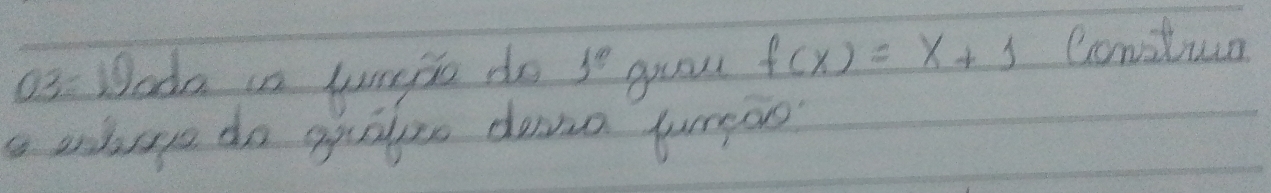 03- Dada a função do 1º grau f(x) = x + 1 Construa
o esboço do gráfico dessa função.